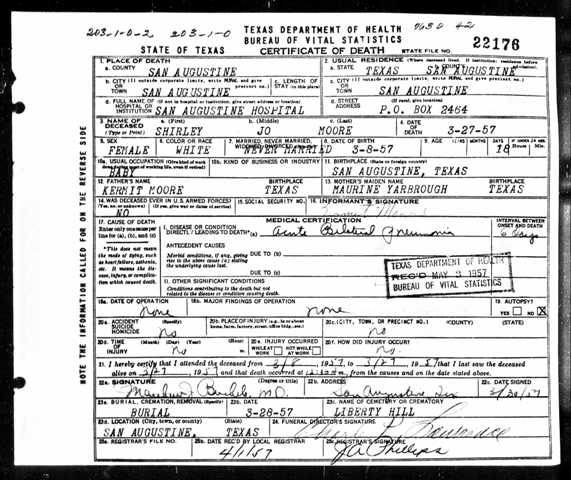 203-1-0-2 203-1-0 TEXAS DEPARTMENT OF HEALTH
BUREAU OF VITAL STATISTICS
STATE OF TEXAS CERTIFICATE OF DEATH STATE FILE NO. 22176
1. PLACE OF DEATH 2. USUAL RESIDENCE (Where deceased lived. If institution: residence before
a. COUNTY SAN AUGUSTINE a. STATE TEXAS b. COUNTY SAN AUGUSTINE
b. CITY (If outside corporate limits, write RURAL and give precinct no.) OR TOWN SAN AUGUSTINE c. LENGTH OF STAY (in this place) c. CITY (If outside corporate limits, write RURAL and give precinct no.) OR TOWN SAN AUGUSTINE
d. FULL NAME OF (If not in hospital or institution, give street address or location) HOSPITAL OR INSTITUTION SAN AUGUSTINE HOSPITAL d. STREET ADDRESS (If rural, give location) P.O. BOX 2464
3. NAME OF DECEASED (Type or Print) a. (First) SHIRLEY b. (Middle) JO c. (Last) MOORE 4. DATE OF DEATH 3-27-57
5. SEX FEMALE 6. COLOR OR RACE WHITE 7. MARRIED, NEVER MARRIED, NEVER MARRIED 8. DATE OF BIRTH 3-8-57 9. AGE 18
10a. USUAL OCCUPATION (Give kind of work BABY 10b. KIND OF BUSINESS OR INDUSTRY 11. BIRTHPLACE (State or foreign country) SAN AUGUSTINE, TEXAS
12. FATHER'S NAME KERMIT MOORE BIRTHPLACE TEXAS 13. MOTHER'S MAIDEN NAME MAURINE YARBROUGH BIRTHPLACE TEXAS
14. WAS DECEASED EVER IN U.S. ARMED FORCES? (Yes, no, or unknown) (If yes, give war or dates of service) NO 15. SOCIAL SECURITY NO. 16. INFORMANT'S SIGNATURE
17. CAUSE OF DEATH MEDICAL CERTIFICATION INTERVAL BETWEEN ONSET AND DEATH
Enter only one cause per line for (a), (b), and (c) I. DISEASE OR CONDITION DIRECTLY LEADING TO DEATH (a) Acute Bilateral Pneumonia 6 days
*This does not mean the mode of dying, such as heart failure, asthenia, etc. It means the disease, injury, or complication which caused death.
ANTECEDENT CAUSES
Morbid conditions, if any, giving rise to the above cause (a) stating the underlying cause last.
DUE TO (b)
DUE TO (c)
TEXAS DEPARTMENT OF HEALTH
REC'D MAY 3 1957
BUREAU OF VITAL STATISTICS
II. OTHER SIGNIFICANT CONDITIONS
Conditions contributing to the death but not related to the disease or condition causing death.
18a. DATE OF OPERATION none 18b. MAJOR FINDINGS OF OPERATION none 19. AUTOPSY? YES NO X
20a. ACCIDENT SUICIDE HOMICIDE (Specify) no 20b. PLACE OF INJURY (e.g., in or about home, farm, factory, street, office bldg., etc.) 20c. (CITY, TOWN, OR PRECINCT NO.) (COUNTY) (STATE) no
20d. TIME OF INJURY (Month) (Day) (Year) (Hour) no 20e. INJURY OCCURRED WHILE AT WORK NOT WHILE AT WORK 20f. HOW DID INJURY OCCUR? no
21. I hereby certify that I attended the deceased from 3/8 1957, to 3/27, 1957 that I last saw the deceased
alive on 3/27 1957 and that death occurred at from the causes and on the date stated above.
22a. SIGNATURE (Degree or title) M.D. 22b. ADDRESS San Augustine Tex 22c. DATE SIGNED
23a. BURIAL, CREMATION, REMOVAL (Specify) BURIAL 23b. DATE 3-28-57 23c. NAME OF CEMETERY OR CREMATORY LIBERTY HILL
23d. LOCATION (City, town, or county) (State) SAN AUGUSTINE, TEXAS 24. FUNERAL DIRECTOR'S SIGNATURE
25a. REGISTRAR'S FILE NO. 25b. DATE REC'D BY LOCAL REGISTRAR 4/1/57 25c. REGISTRAR'S SIGNATURE JA Phillips
NOTE THE INFORMATION CALLED FOR ON THE REVERSE SIDE